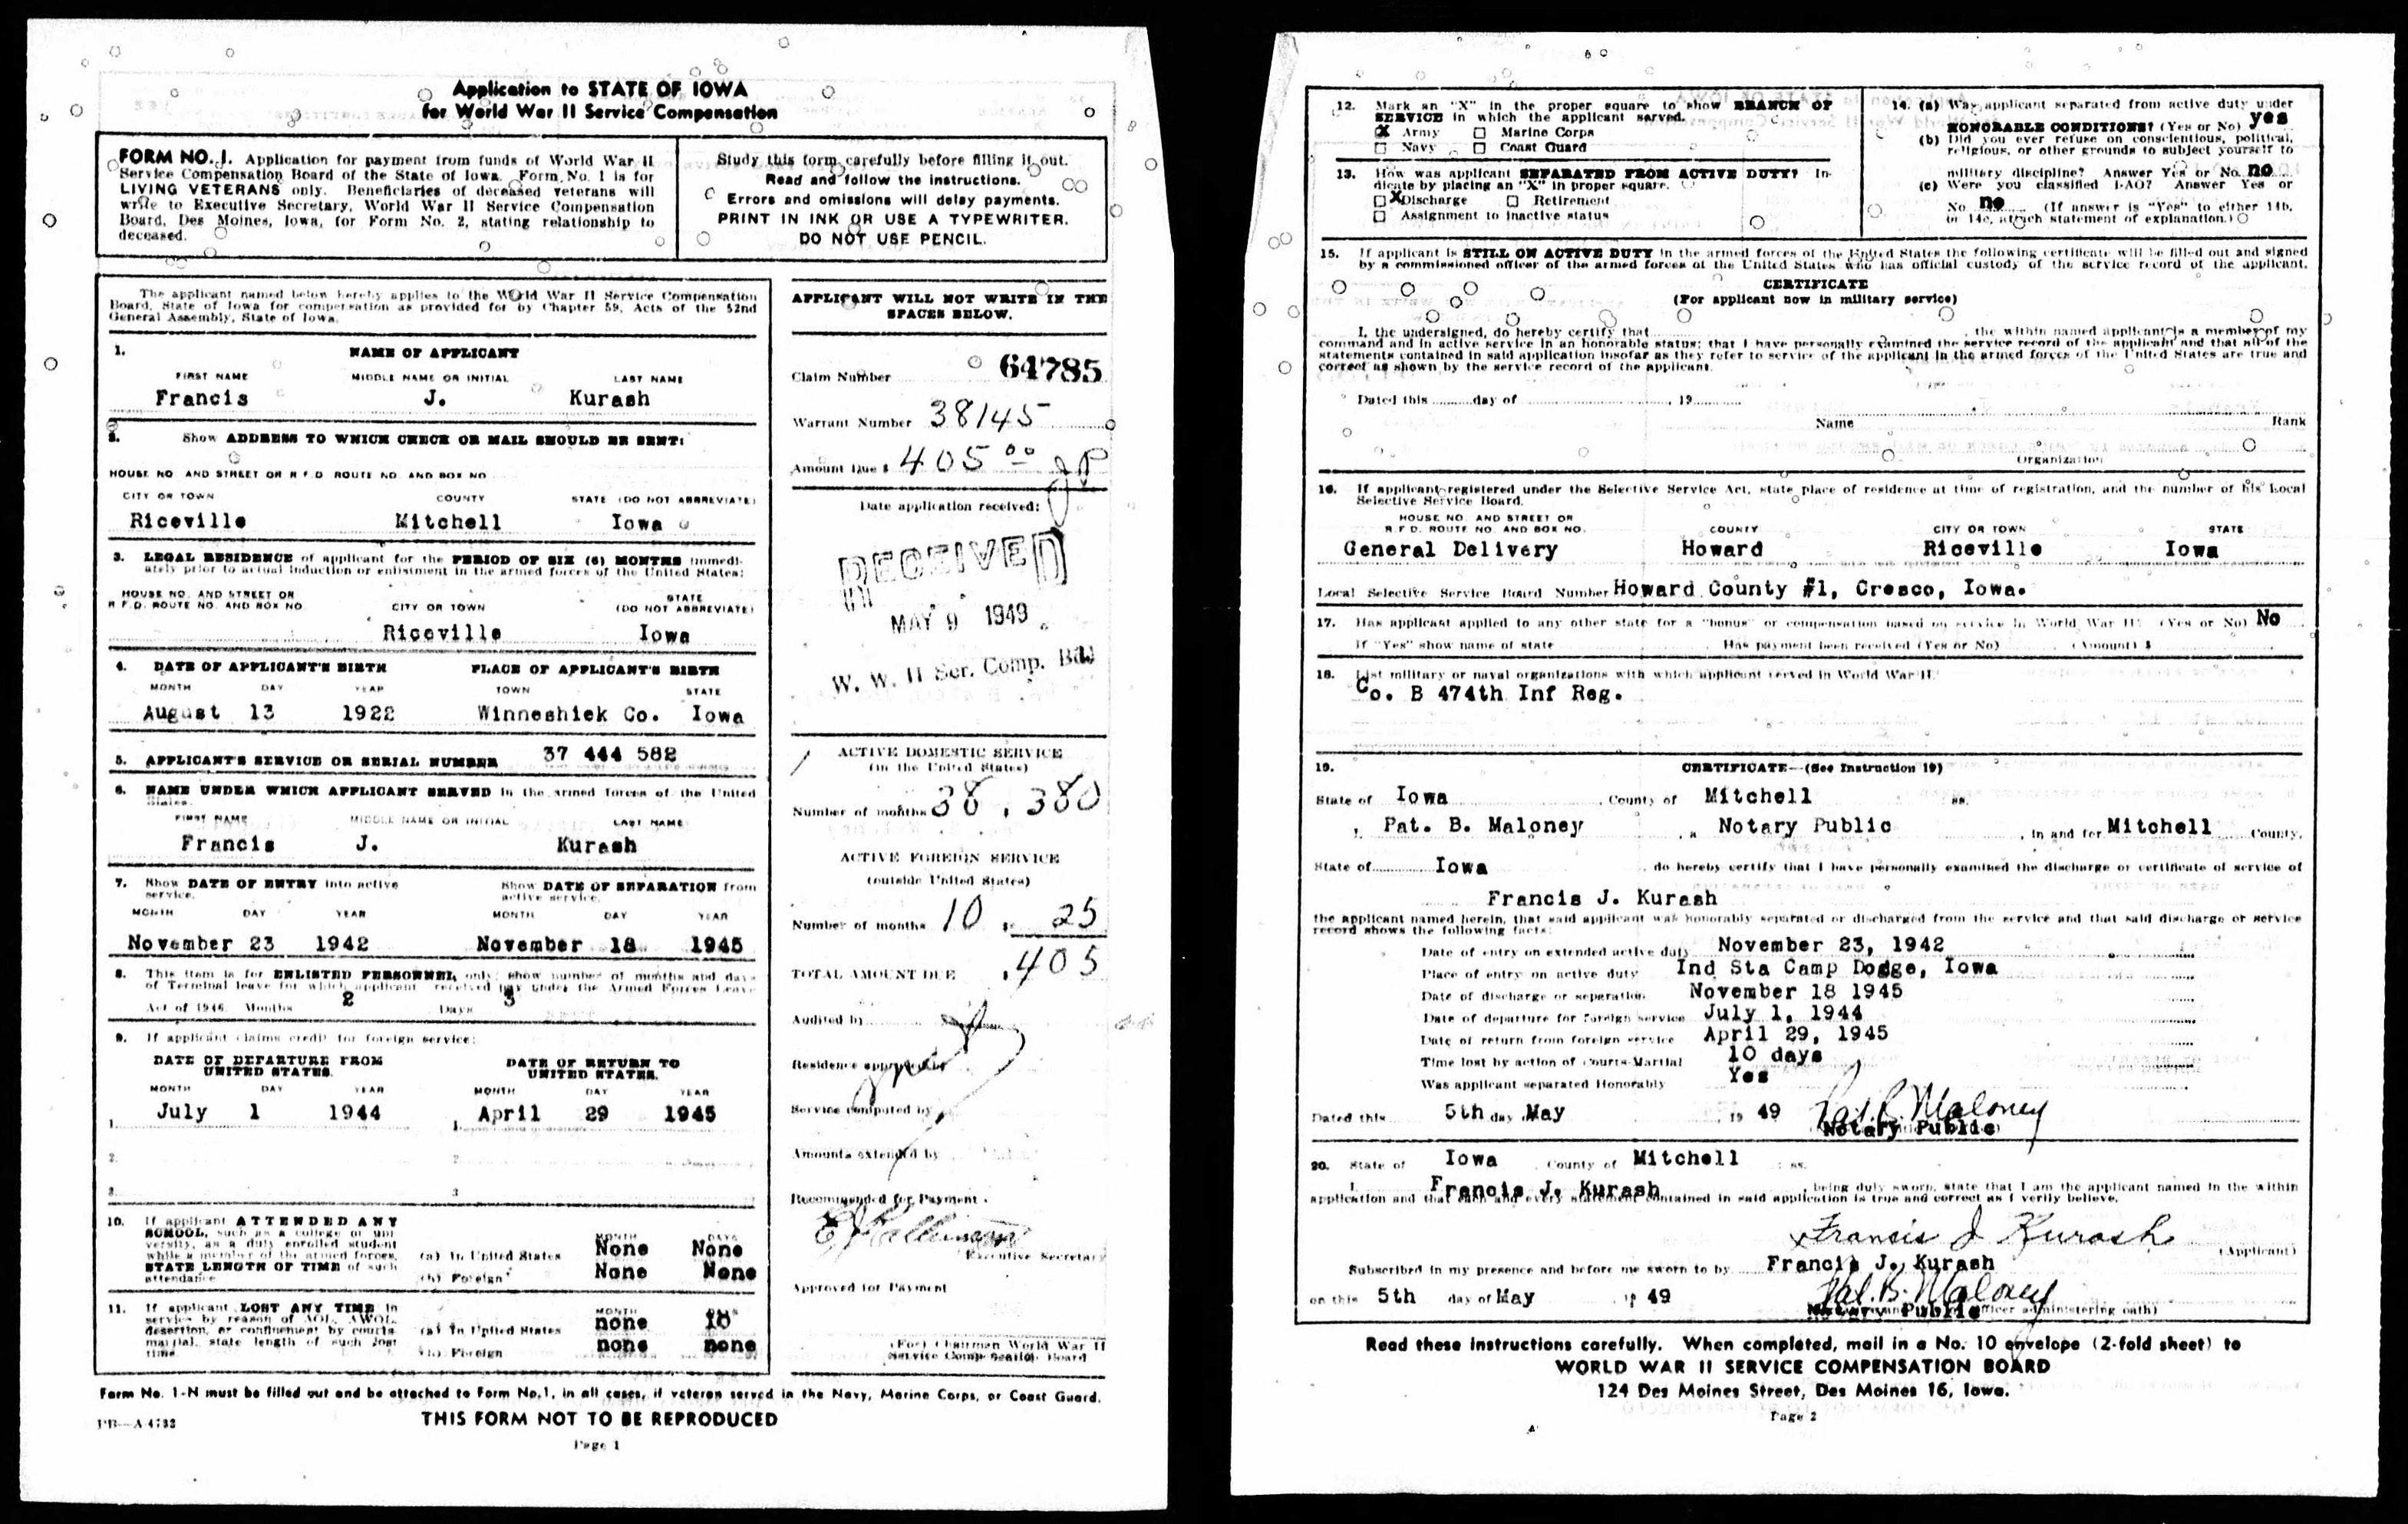 Application to STATE OF IOWA
for World War II Service Compensation
FORM NO. 1. Application for payment from funds of World War II
Service Compensation Board of the State of Iowa. Form No. 1 is for
LIVING VETERANS only. Beneficiaries of deceased veterans will
write to Executive Secretary, World War II Service Compensation
Board, Des Moines, Iowa, for Form No. 2, stating relationship to
deceased.
Study this form carefully before filling it out.
Read and follow the instructions.
Errors and omissions will delay payments.
PRINT IN INK OR USE A TYPEWRITER.
DO NOT USE PENCIL.
The applicant named below hereby applies to the World War II Service Compensation
Board, State of Iowa for compensation as provided for by Chapter 59, Acts of the 52nd
General Assembly, State of Iowa.
1. NAME OF APPLICANT
FIRST NAME MIDDLE NAME OR INITIAL LAST NAME
Francis J. Kurash
2. Show ADDRESS TO WHICH CHECK OR MAIL SHOULD BE SENT:
HOUSE NO. AND STREET OR R.F.D. ROUTE NO. AND BOX NO.
CITY OR TOWN COUNTY STATE (DO NOT ABBREVIATE)
Riceville Mitchell Iowa
3. LEGAL RESIDENCE of applicant for the PERIOD OF SIX (6) MONTHS immedi-
ately prior to actual induction or enlistment in the armed forces of the United States:
HOUSE NO. AND STREET OR
R.F.D. ROUTE NO. AND BOX NO. CITY OR TOWN STATE (DO NOT ABBREVIATE)
Riceville Iowa
4. DATE OF APPLICANT'S BIRTH PLACE OF APPLICANT'S BIRTH
MONTH DAY YEAR TOWN STATE
August 13 1922 Winneshiek Co. Iowa
5. APPLICANT'S SERVICE OR SERIAL NUMBER 37 444 582
6. NAME UNDER WHICH APPLICANT SERVED in the armed forces of the United
States.
FIRST NAME MIDDLE NAME OR INITIAL LAST NAME
Francis J. Kurash
7. Show DATE OF ENTRY into active
service. Show DATE OF SEPARATION from
active service.
MONTH DAY YEAR MONTH DAY YEAR
November 23 1942 November 18 1945
8. This item is for ENLISTED PERSONNEL only: show number of months and days
of Terminal leave for which applicant received pay under the Armed Forces Leave
Act of 1946. Months 2 Days 3
9. If applicant claims credit for foreign service:
DATE OF DEPARTURE FROM
UNITED STATES. DATE OF RETURN TO
UNITED STATES.
MONTH DAY YEAR MONTH DAY YEAR
1. July 1 1944 1. April 29 1945
2. 2
3. 3
10. If applicant ATTENDED ANY
SCHOOL, such as a college or uni-
versity, as a duly enrolled student
while a member of the armed forces,
STATE LENGTH OF TIME of such
attendance
MONTH DAYS
(a) In United States None None
(b) Foreign None None
11. If applicant LOST ANY TIME in
service by reason of AOL, AWOL,
desertion, or confinement by courts-
martial, state length of such lost
time.
MONTH DAYS
(a) In United States none 10
(b) Foreign none none
APPLICANT WILL NOT WRITE IN THE
SPACES BELOW.
Claim Number 64785
Warrant Number 38145
Amount Due $ 405 00
Date application received:
RECEIVED
MAY 9 1949
W. W. II Ser. Comp. Bd.
ACTIVE DOMESTIC SERVICE
(in the United States)
Number of months 38 . 380
ACTIVE FOREIGN SERVICE
(outside United States)
Number of months 10 $ 25
TOTAL AMOUNT DUE $ 405
Audited by
Residence approved by
Service computed by
Amounts extended by
Recommended for Payment
Executive Secretary
Approved for Payment
(For) Chairman World War II
Service Compensation Board
Form No. 1-N must be filled out and be attached to Form No. 1, in all cases, if veteran served in the Navy, Marine Corps, or Coast Guard.
PB—A 4732 THIS FORM NOT TO BE REPRODUCED
Page 1
12. Mark an "X" in the proper square to show BRANCH OF
SERVICE in which the applicant served.
X Army Marine Corps
Navy Coast Guard
13. How was applicant SEPARATED FROM ACTIVE DUTY? In-
dicate by placing an "X" in proper square.
X Discharge Retirement
Assignment to inactive status
14. (a) Was applicant separated from active duty under
HONORABLE CONDITIONS? (Yes or No) yes
(b) Did you ever refuse on conscientious, political,
religious, or other grounds to subject yourself to
military discipline? Answer Yes or No. no
(c) Were you classified 1-AO? Answer Yes or
No no (If answer is "Yes" to either 14b,
or 14c, attach statement of explanation.)
15. If applicant is STILL ON ACTIVE DUTY in the armed forces of the United States the following certificate will be filled out and signed
by a commissioned officer of the armed forces of the United States who has official custody of the service record of the applicant.
CERTIFICATE
(For applicant now in military service)
I, the undersigned, do hereby certify that , the within named applicant is a member of my
command and in active service in an honorable status; that I have personally examined the service record of the applicant and that all of the
statements contained in said application insofar as they refer to service of the applicant in the armed forces of the United States are true and
correct as shown by the service record of the applicant.
Dated this day of , 19
Name Rank
Organization
16. If applicant registered under the Selective Service Act, state place of residence at time of registration, and the number of his Local
Selective Service Board.
HOUSE NO. AND STREET OR
R.F.D. ROUTE NO. AND BOX NO. COUNTY CITY OR TOWN STATE
General Delivery Howard Riceville Iowa
Local Selective Service Board Number Howard County #1, Cresco, Iowa.
17. Has applicant applied to any other state for a "bonus" or compensation based on service in World War II? (Yes or No) No
If "Yes" show name of state Has payment been received (Yes or No) (Amount) $
18. List military or naval organizations with which applicant served in World War II.
Co. B 474th Inf Reg.
19. CERTIFICATE—(See Instruction 19)
State of Iowa , County of Mitchell ss.
I, Pat. B. Maloney , a Notary Public , in and for Mitchell County,
State of Iowa , do hereby certify that I have personally examined the discharge or certificate of service of
Francis J. Kurash
the applicant named herein, that said applicant was honorably separated or discharged from the service and that said discharge or service
record shows the following facts:
Date of entry on extended active duty November 23, 1942
Place of entry on active duty Ind Sta Camp Dodge, Iowa
Date of discharge or separation November 18 1945
Date of departure for foreign service July 1, 1944
Date of return from foreign service April 29, 1945
Time lost by action of Courts-Martial 10 days
Was applicant separated Honorably Yes
Dated this 5th day of May , 19 49 Pat. B. Maloney
Notary Public
20. State of Iowa County of Mitchell : ss.
I, Francis J. Kurash , being duly sworn, state that I am the applicant named in the within
application and that each and every statement contained in said application is true and correct as I verily believe.
x Francis J Kurash
(Applicant)
Subscribed in my presence and before me sworn to by Francis J. Kurash
on this 5th day of May 19 49 Pat. B. Maloney
Notary Public (officer administering oath)
Read these instructions carefully. When completed, mail in a No. 10 envelope (2-fold sheet) to
WORLD WAR II SERVICE COMPENSATION BOARD
124 Des Moines Street, Des Moines 16, Iowa.
Page 2